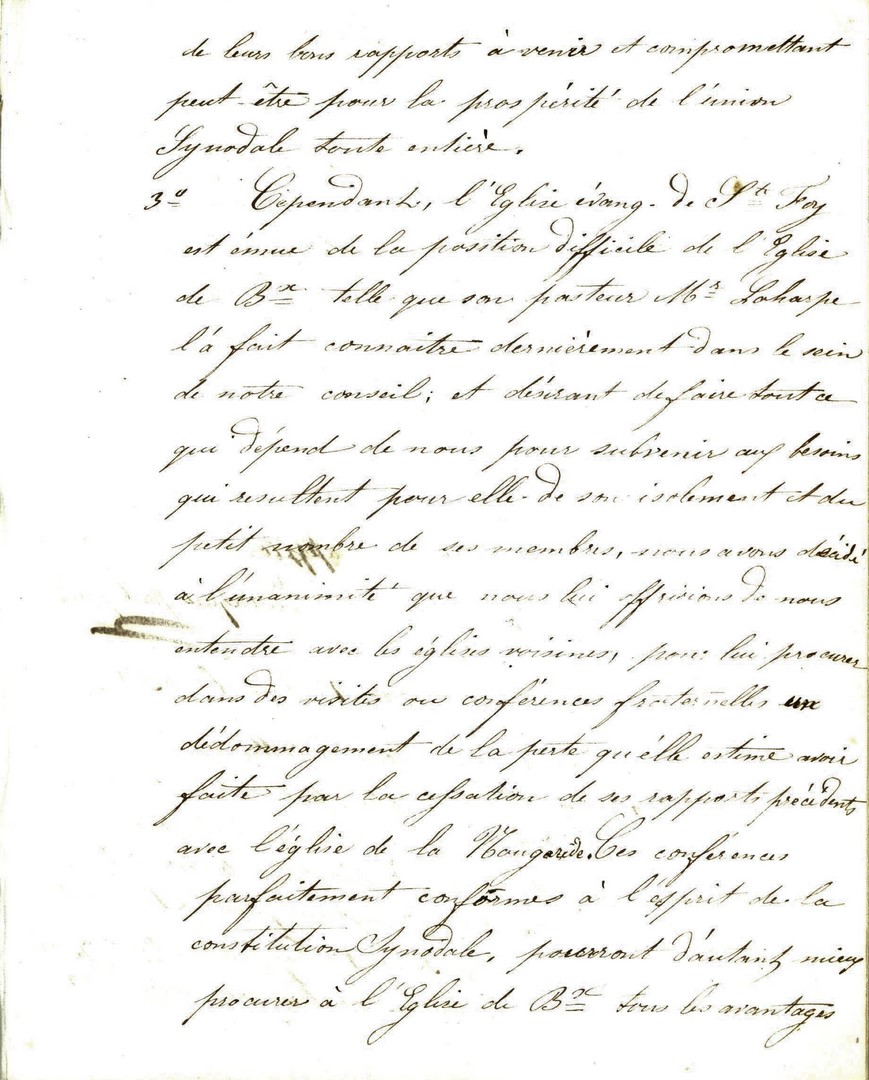 de leurs bons rapports à venir et compromettant
peut-être pour la prospérité de l'union
Synodale toute entière.
3º Cependant, l'Eglise évang. de Ste Foy
est émue de la position difficile de l'Eglise
de Bx telle que son pasteur Mr Laharpe
l'a fait connaitre dernièrement dans le sein
de notre conseil; et désirant de faire tout ce
qui dépend de nous pour subvenir aux besoins
qui resultent pour elle de son isolement et du
petit nombre de ses membres, nous avons décidé
à l'unanimité que nous lui offririons de nous
entendre avec les églises voisines, pour lui procurer
dans des visites ou conférences fraternelles un
dédommagement de la perte qu'elle estime avoir
faite par la cessation de ses rapports précédents
avec l'église de la Nougarède. Ces conférences
parfaitement conformes à l'esprit de la
constitution Synodale, pourront d'autant mieux
procurer à l'Eglise de Bx tous les avantages